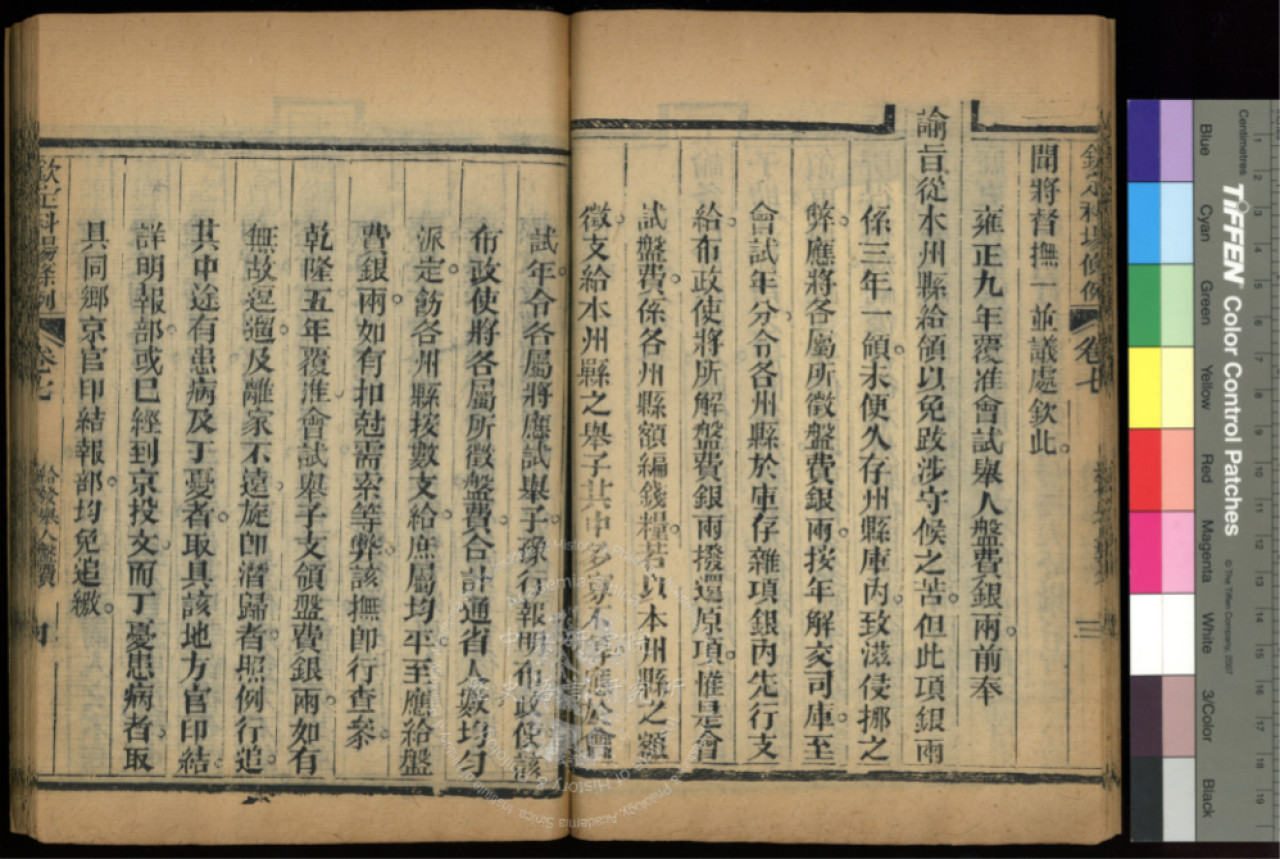 欽定科場條例 卷七 三
聞將督撫一並議處欽此。
雍正九年覆准會試舉人盤費銀兩。前奉
諭旨從本州縣給領以免跋涉守候之苦。但此項銀兩
係三年一領。未便久存州縣庫內。致滋侵挪之
弊。應將各屬所徵盤費銀兩。按年解交司庫。至
會試年分。令各州縣於庫存雜項銀內先行支
給。布政使將所解盤費銀兩撥還原項。惟是會
試盤費。係各州縣額編錢糧。若以本州縣之額
徵。支給本州縣之舉子。其中多寡不等。應於會
試年。令各屬將應試舉子。豫行報明布政使。該
布政使將各屬所徵盤費。合計通省人數均勻
派定。飭各州縣按數支給。庶屬均平。至應給盤
費銀兩。如有扣尅需索等弊。該撫即行查參。
乾隆五年覆准。會試舉子支領盤費銀兩。如有
無故逗遛。及離家不遠。旋即潛歸者。照例行追。
其中途有患病及丁憂者。取具該地方官印結。
詳明報部。或已經到京投文。而丁憂患病者。取
具同鄉京官印結報部。均免追繳。
欽定科場條例 卷七 給發舉人盤費 四
TIFFEN Color Control Patches
© The Tiffen Company, 2007
Centimetres
Blue Cyan Green Yellow Red Magenta White 3/Color Black
1 2 3 4 5 6 7 8 9 10 11 12 13 14 15 16 17 18 19